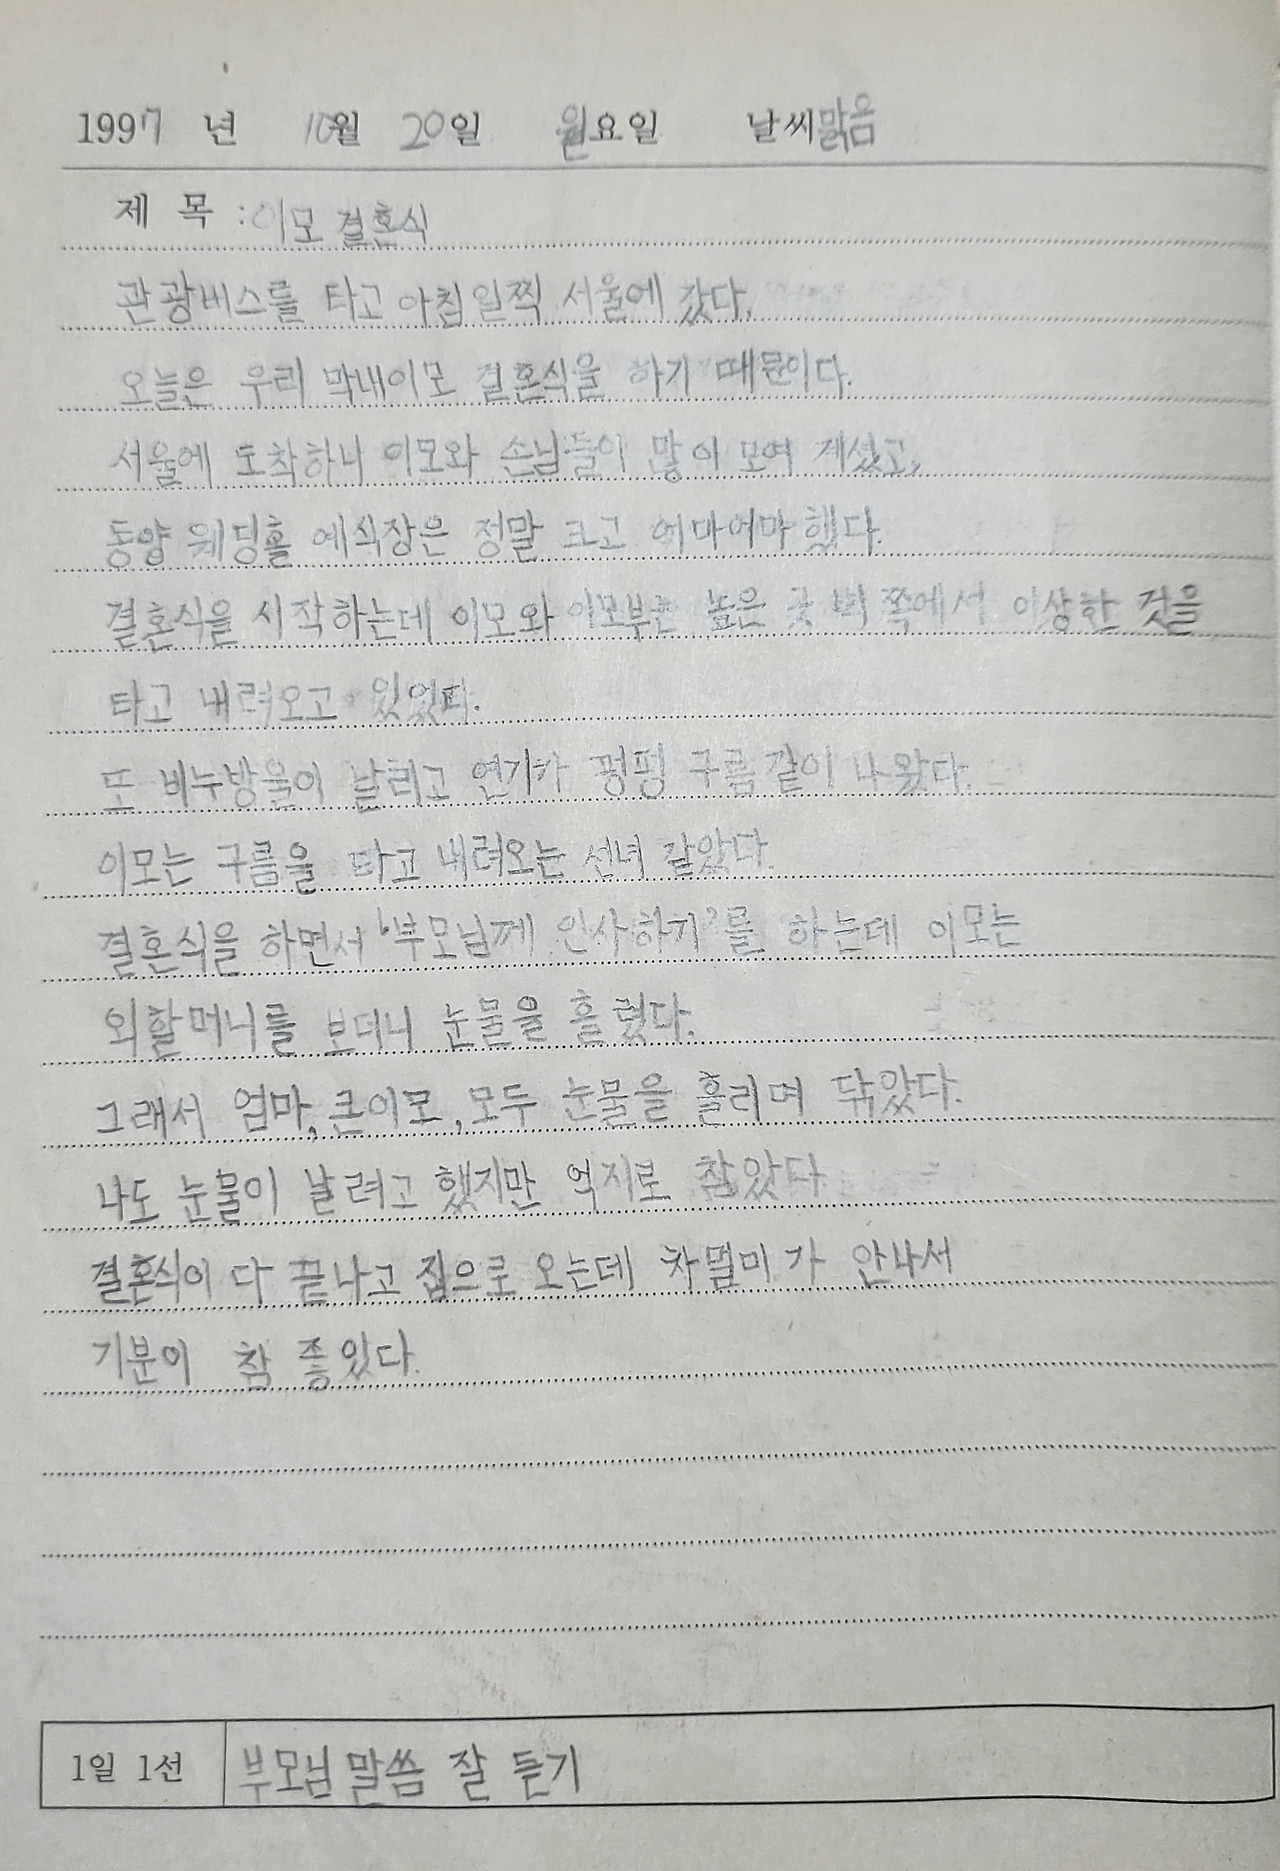 1997 년 10월 20일 월요일 날씨 맑음
제 목 : 이모 결혼식
관광버스를 타고 아침 일찍 서울에 갔다.
오늘은 우리 막내이모 결혼식을 하기 때문이다.
서울에 도착하니 이모와 손님들이 많이 모여 계셨고,
동양 웨딩홀 예식장은 정말 크고 어마어마 했다.
결혼식을 시작하는데 이모와 이모부는 높은 곳 벽 쪽에서 이상한 것을
타고 내려오고 있었다.
또 비누방울이 날리고 연기가 펑펑 구름같이 나왔다.
이모는 구름을 타고 내려오는 선녀 같았다.
결혼식을 하면서 '부모님께 인사하기'를 하는데 이모는
외할머니를 보더니 눈물을 흘렸다.
그래서 엄마, 큰이모, 모두 눈물을 흘리며 닦았다.
나도 눈물이 날려고 했지만 억지로 참았다
결혼식이 다 끝나고 집으로 오는데 차멀미가 안나서
기분이 참 좋았다.
1일 1선 부모님 말씀 잘 듣기